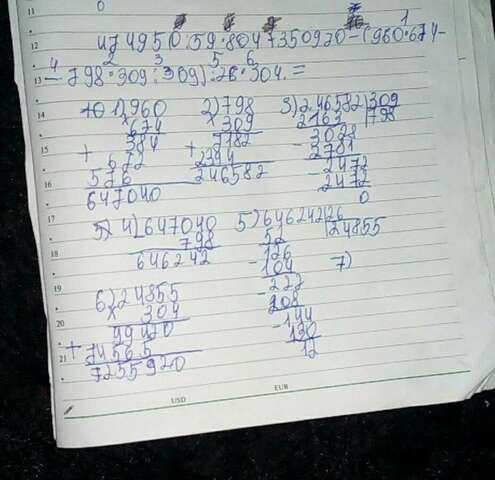 11
0
12
474950:59·8047350920-(960·674-
13 -798·309:309):26·304.=
14
1)960 2)798 3)246582|309
×674 ×309 2163 |798
15
384 7182 -3028
+ 672 + 2394 2781
16 576 246582 -2472
647040 2472
17 0
4)647040 5)646242|26
798 52 |24855
18 646242 -126
104 7)
19 6)24855 -222
×304 208
20 99420 -144
+74565 130
21 7255920 12
USD EUR